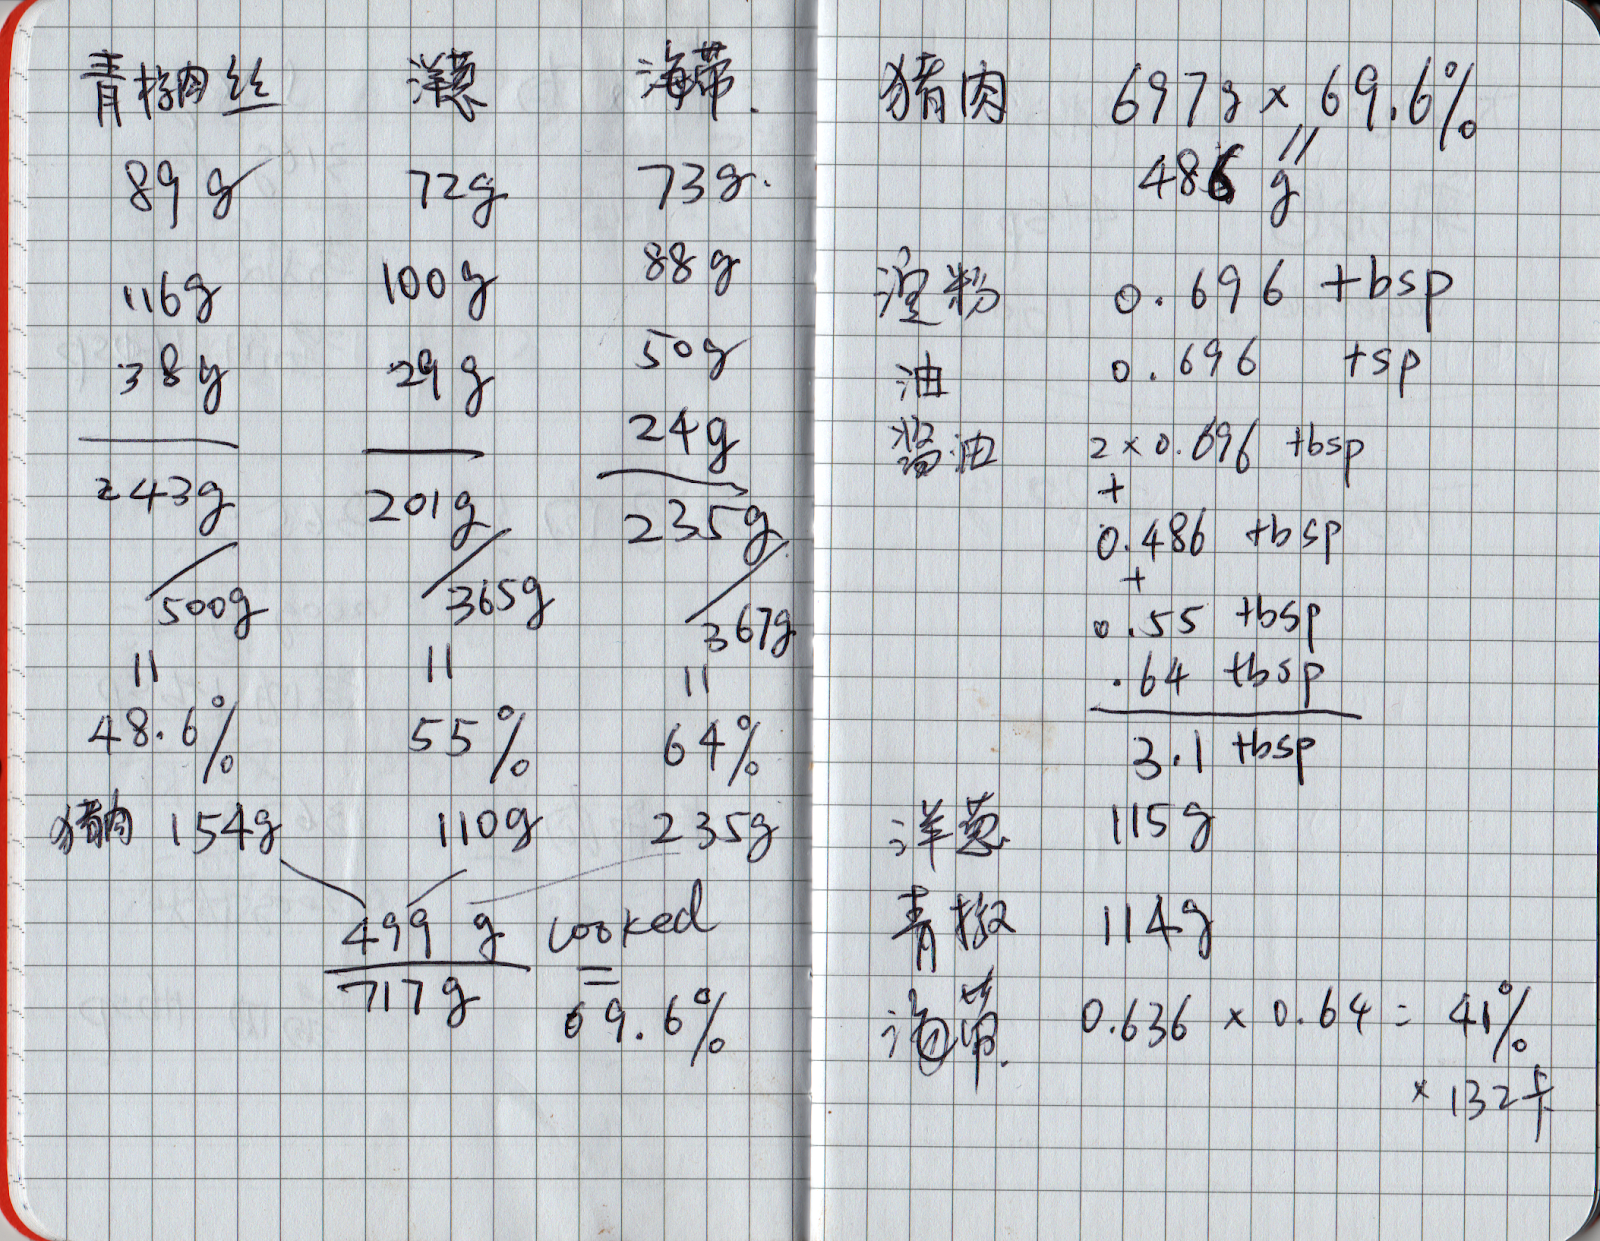 青椒肉丝 洋葱 海带.
89g 72g 73g.
116g 100g 88g
38g 29g 50g
24g
243g 201g 235g
500g 365g 367g
= = =
48.6% 55% 64%
猪肉 154g 110g 235g
499g cooked
717g = 69.6%
猪肉 697g × 69.6%
=
486 g
淀粉 0.696 tbsp
油 0.696 tsp
酱油 2 × 0.696 tbsp
+
0.486 tbsp
+
0.55 tbsp
.64 tbsp
3.1 tbsp
洋葱 115g
青椒 114g
海带. 0.636 × 0.64 = 41%
× 132卡